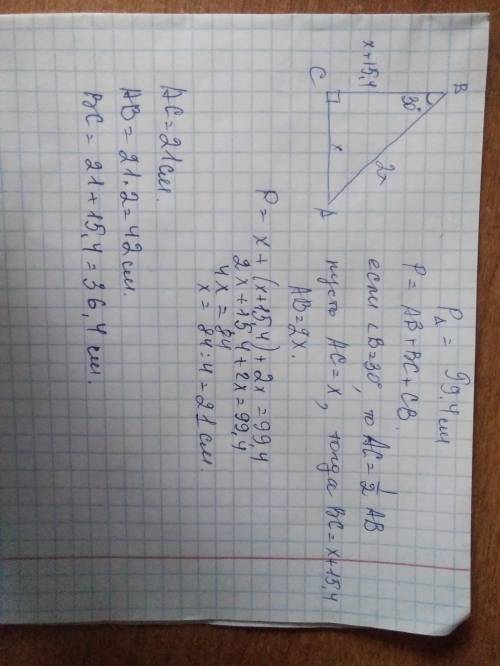 P△ = 99,4 см
P = AB + BC + CB.
если ∠B = 30°, то AC = 1/2 AB
пусть AC = x, тогда BC = x + 15,4
AB = 2x.
P = x + (x + 15,4) + 2x = 99,4
2x + 15,4 + 2x = 99,4
4x = 84
x = 84 : 4 = 21 см.
AC = 21 см.
AB = 21 · 2 = 42 см.
BC = 21 + 15,4 = 36,4 см.
B
30°
x+15,4
2x
C
x
A